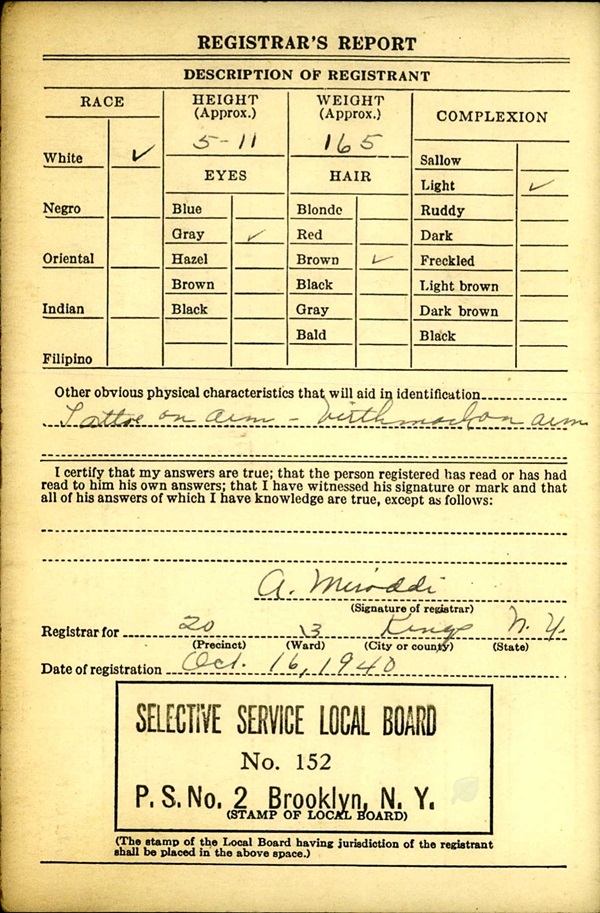 REGISTRAR'S REPORT
DESCRIPTION OF REGISTRANT
RACE
HEIGHT (Approx.)
WEIGHT (Approx.)
COMPLEXION
5-11
165
White ✓
EYES
HAIR
Sallow
Light ✓
Negro
Blue
Blonde
Ruddy
Gray ✓
Red
Dark
Oriental
Hazel
Brown ✓
Freckled
Brown
Black
Light brown
Indian
Black
Gray
Dark brown
Bald
Black
Filipino
Other obvious physical characteristics that will aid in identification
Tattoo on arm - birthmark on arm
I certify that my answers are true; that the person registered has read or has had
read to him his own answers; that I have witnessed his signature or mark and that
all of his answers of which I have knowledge are true, except as follows:
A.
(Signature of registrar)
Registrar for 20 13 Kings N.Y.
(Precinct) (Ward) (City or county) (State)
Date of registration Oct. 16, 1940
SELECTIVE SERVICE LOCAL BOARD
No. 152
P.S. No. 2 Brooklyn, N. Y.
(STAMP OF LOCAL BOARD)
(The stamp of the Local Board having jurisdiction of the registrant
shall be placed in the above space.)